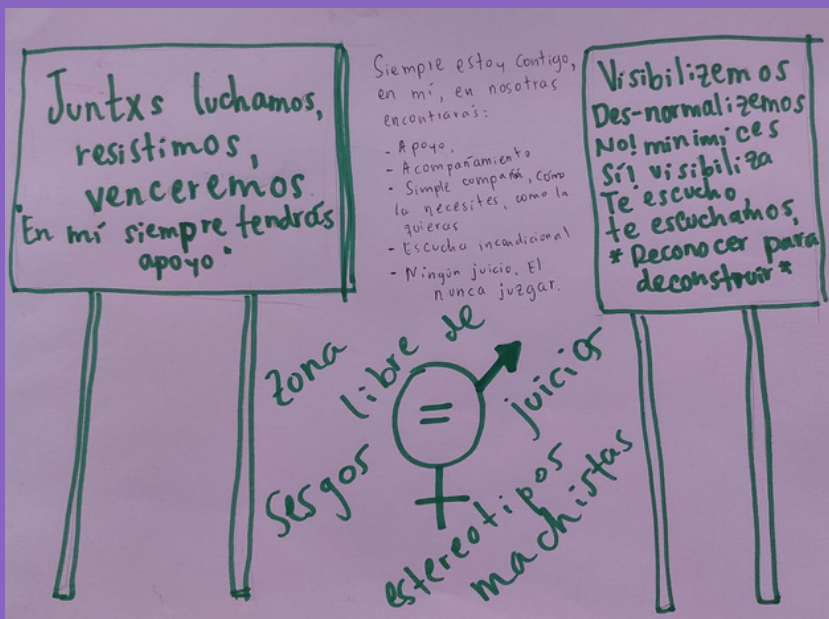 Juntxs luchamos,
resistimos,
venceremos
"En mí siempre tendrás
apoyo"
Siempre estoy contigo,
en mí, en nosotras
encontrarás:
- Apoyo,
- Acompañamiento
- Simple compañía, como
la necesites, como la
quieras
- Escucha incondicional
- Ningún juicio. El
nunca juzgar.
Visibilizemos
Des-normalizemos
No! minimices
Sí! visibiliza
Te escucho,
te escuchamos,
* Reconocer para
deconstruir *
Zona
libre de
juicios
=
Sesgos
estereotipos
machistas